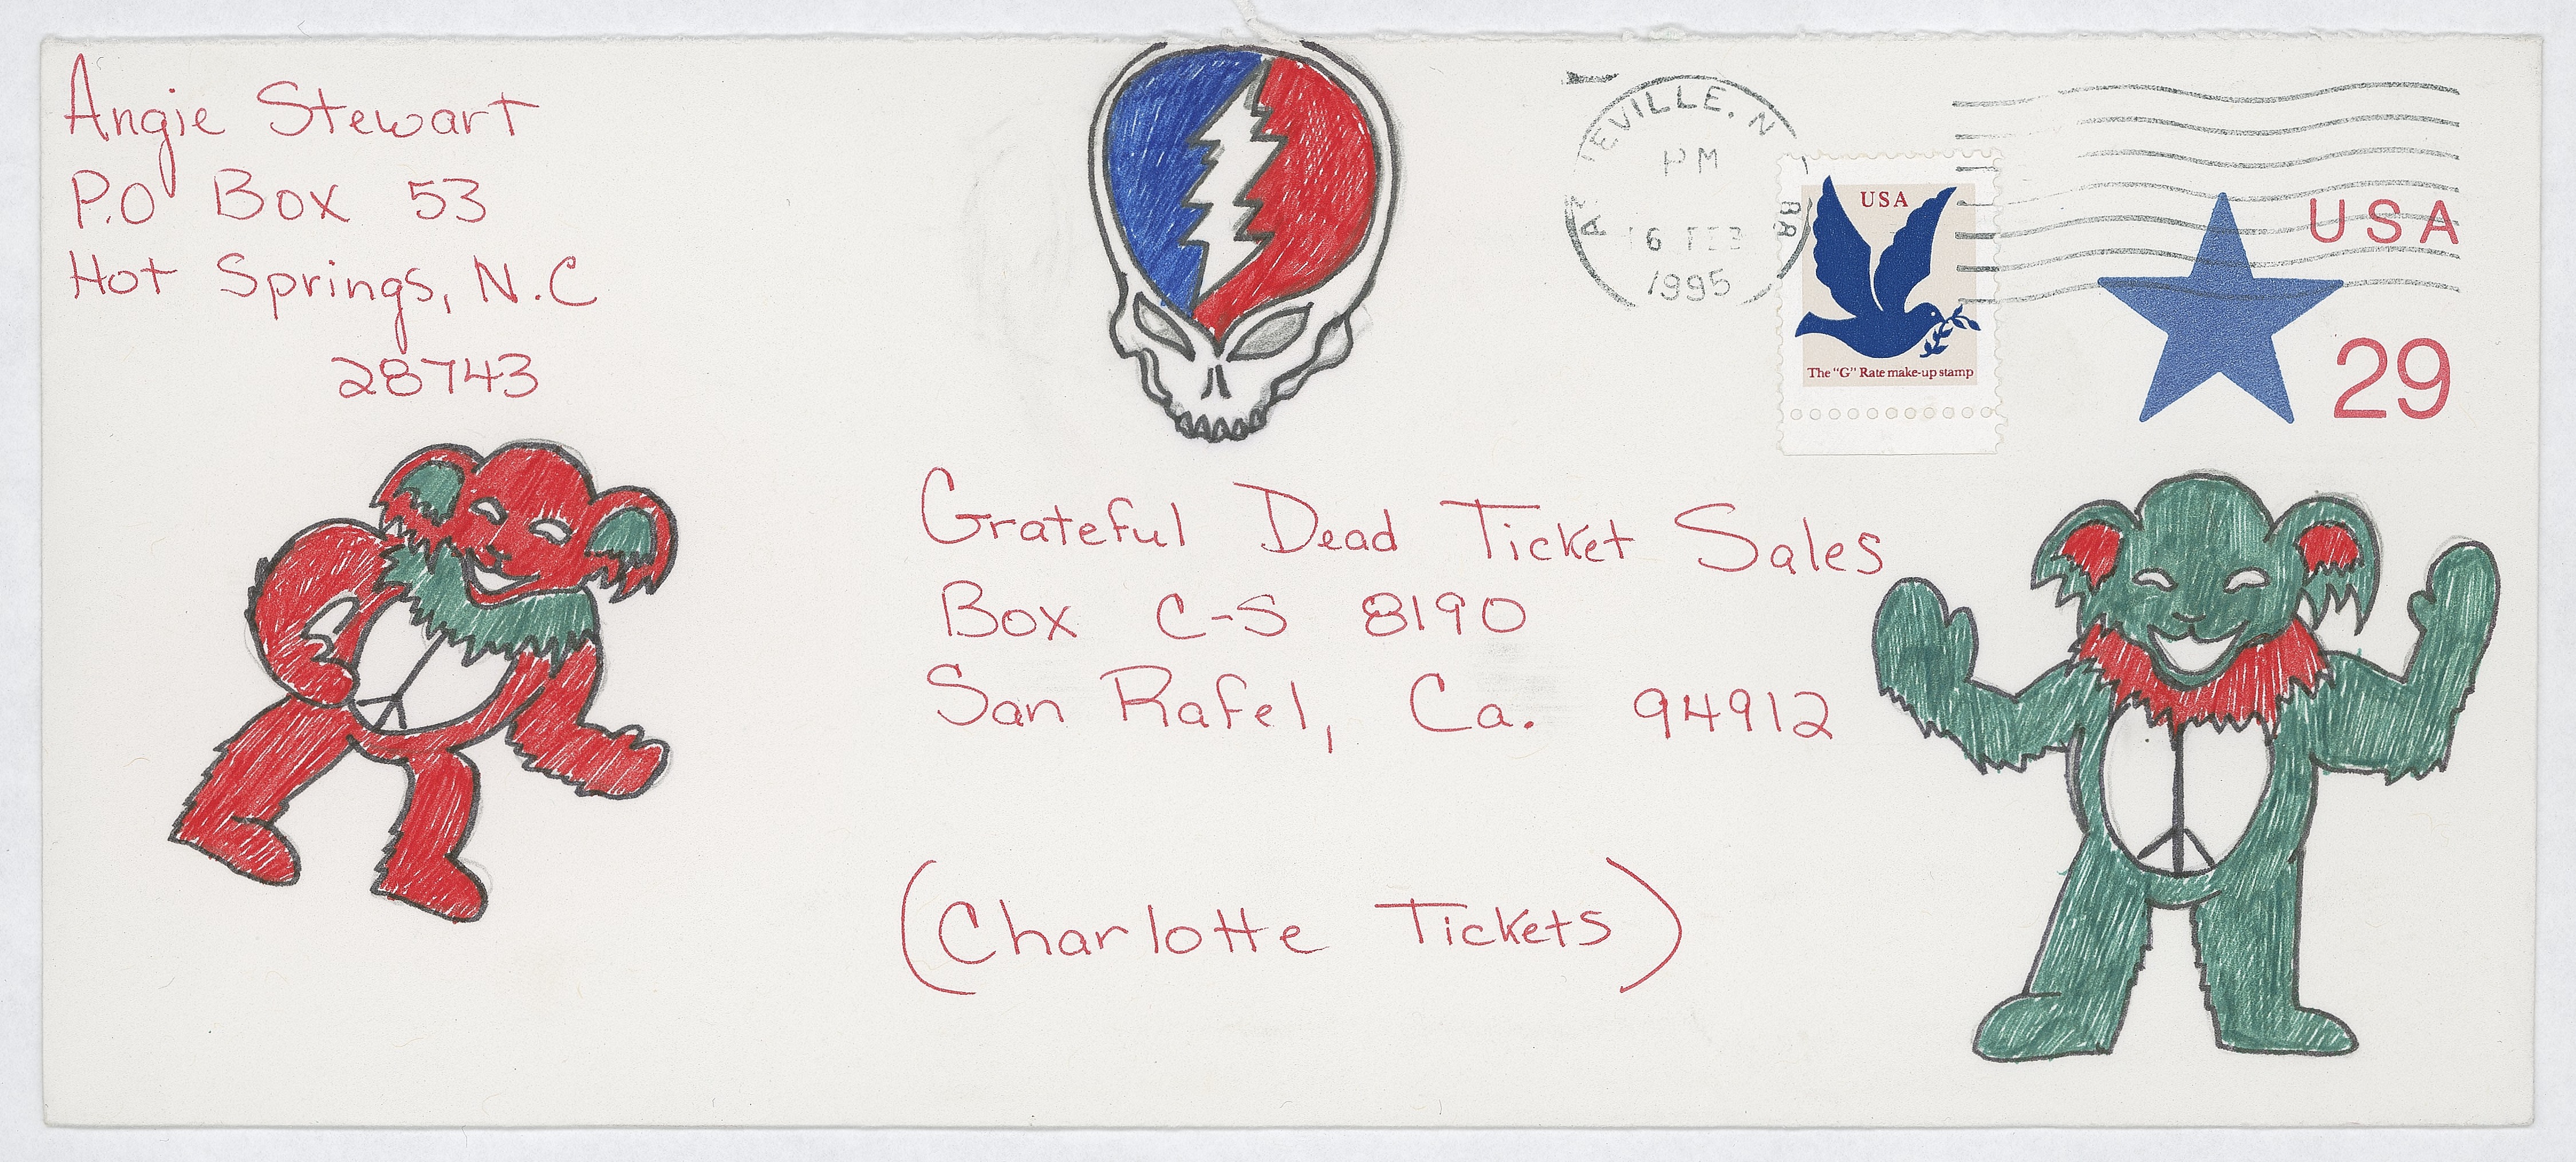 Angie Stewart
P.O Box 53
Hot Springs, N.C
28743
EVILLE, N
PM
16 FEB
1995
USA
The "G" Rate make-up stamp
USA
29
Grateful Dead Ticket Sales
Box C-S 8190
San Rafel, Ca. 94912
(Charlotte Tickets)